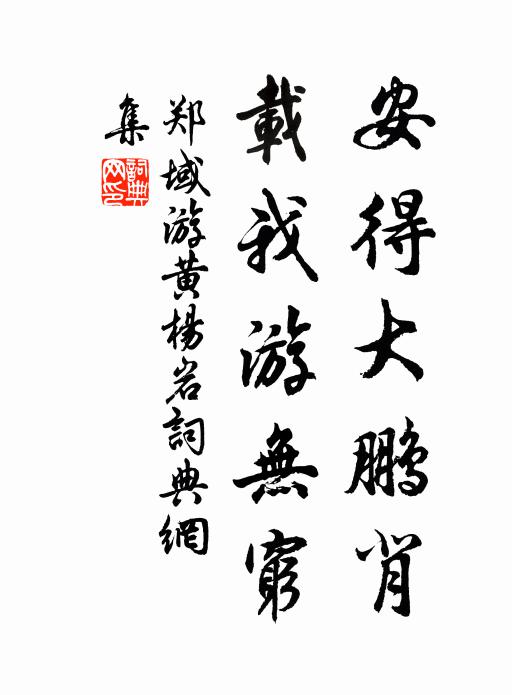 安得大鹏背
載我游無窮
郑域游黄楊岩詞典網
集
詞典网印